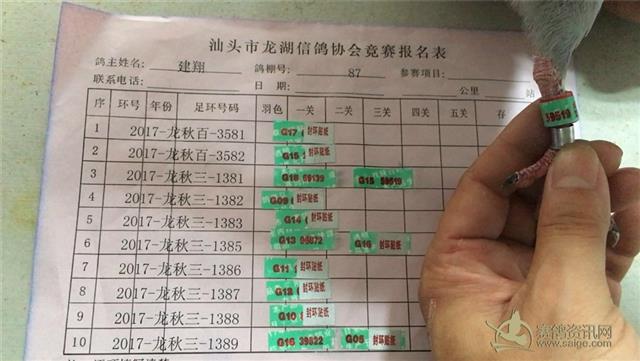 汕头市龙湖信鸽协会竞赛报名表
鸽主姓名: 建翔 鸽棚号: 87 参赛项目:
联系电话: 日期: 公里 站
序 环号 年份 足环号码 羽色 一关 二关 三关 四关 五关 存
1 2017-龙秋百-3581 G17 封环贴纸
2 2017-龙秋百-3582 G15 封环贴纸
3 2017-龙秋三-1381 G18 69139 G15 59619
4 2017-龙秋三-1382 G09 封环贴纸
5 2017-龙秋三-1383 G14 封环贴纸
6 2017-龙秋三-1385 G13 G16 封环贴纸
7 2017-龙秋三-1386 G11 封环贴纸
8 2017-龙秋三-1387 G12 封环贴纸
9 2017-龙秋三-1388 G10 封环贴纸
10 2017-龙秋三-1389 G16 39822 G05 封环贴纸
39619
赛鸽资讯网
www.saige.com